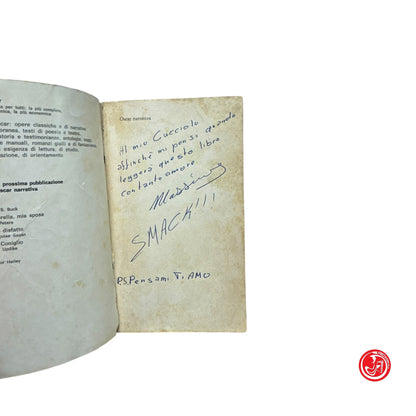 per tutti: la più completa,
nica, la più economica
scar: opere classiche e di narrativa
oranea, testi di poesia e teatro,
storia e testimonianze, antologie,
e manuali, romanzi gialli e di fantascienza
esigenza di lettura, di studio,
azione, di orientamento
prossima pubblicazione
scar narrativa
S. Buck
rella, mia sposa
Peters
disfatto
Coniglio
Updike
ur Hailey
Oscar narrativa
Al mio Cucciolo
affinché mi pensi quando
leggerà questo libro
con tanto amore
SMACK!!!
P.S. Pensami Ti AMO